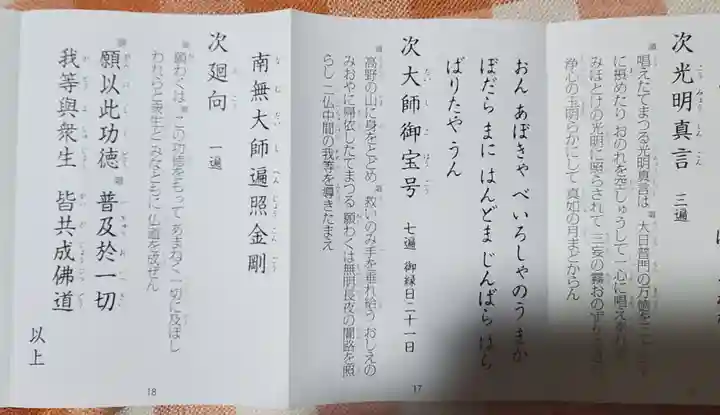 次 光明真言 三遍
唱えたてまつる光明真言は 大日普門の万徳を
に摂めたり おのれを空しゅうして一心に唱え
みほとけの光明に照らされて 三妄の霧おの
浄心の玉明らかにして 真如の月まどからん
おん あぼきゃ べいろしゃのう まか
ぼだら まに はんどま じんばら はら
ばりたや うん
次 大師御宝号 七遍 御縁日二十一日
高野の山に身をとどめ 救いのみ手を垂れ給う おしえの
みおやに帰依したてまつる 願わくは無明長夜の闇路を照
らし 二仏中間の我等を導きたまえ
17
南無大師遍照金剛
次 廻向 一遍
願わくは この功徳をもって あまねく一切に及ぼし
われらと衆生と みなともに仏道を成ぜん
願以此功徳 普及於一切
我等與衆生 皆共成佛道
以上
18